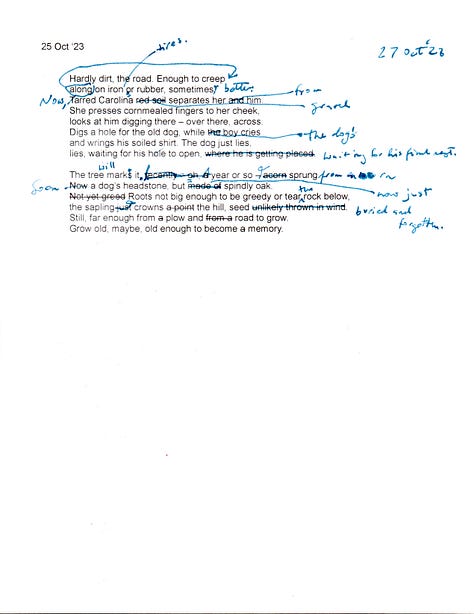 25 Oct '23
27 Oct '23
tires.
Hardly dirt, the road. Enough to creep
along on iron or rubber, sometimes, better
Now, Tarred Carolina red soil separates her and him. from
She presses cornmealed fingers to her cheek, gravel
looks at him digging there – over there, across.
Digs a hole for the old dog, while the boy cries the dog's
and wrings his soiled shirt. The dog just lies.
lies, waiting for his hole to open, where he is getting placed. waiting for his final rest.
will
The tree marks it, recently on A year or so acorn sprung from in
Soon Now a dog's headstone, but made of spindly oak.
Not yet greed Roots not big enough to be greedy or tear rock below, the now just
the sapling just crowns a point the hill, seed unlikely thrown in wind. buried and
Still, far enough from a plow and from a road to grow. forgotten.
Grow old, maybe, old enough to become a memory.